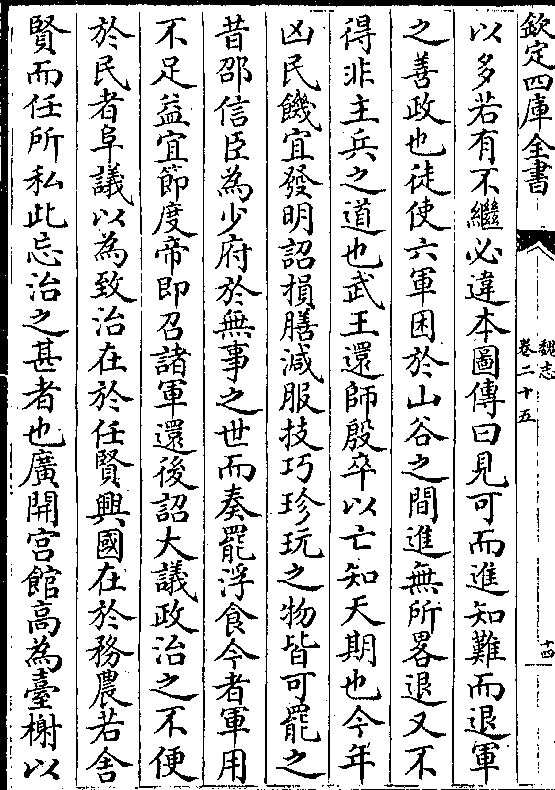 欽定四庫全書
魏志
卷二十五
十四
以多若有不繼必違本圖傳曰見可而進知難而退軍
之善政也徒使六軍困於山谷之間進無所畧退又不
得非主兵之道也武王還師殷卒以亡知天期也今年
凶民饑宜發明詔損膳減服技巧珍玩之物皆可罷之
昔邵信臣為少府於無事之世而奏罷浮食今者軍用
不足益宜節度帝即召諸軍還後詔大議政治之不便
於民者阜議以為致治在於任賢興國在於務農若舍
賢而任所私此忘治之甚者也廣開宫館高為臺榭以